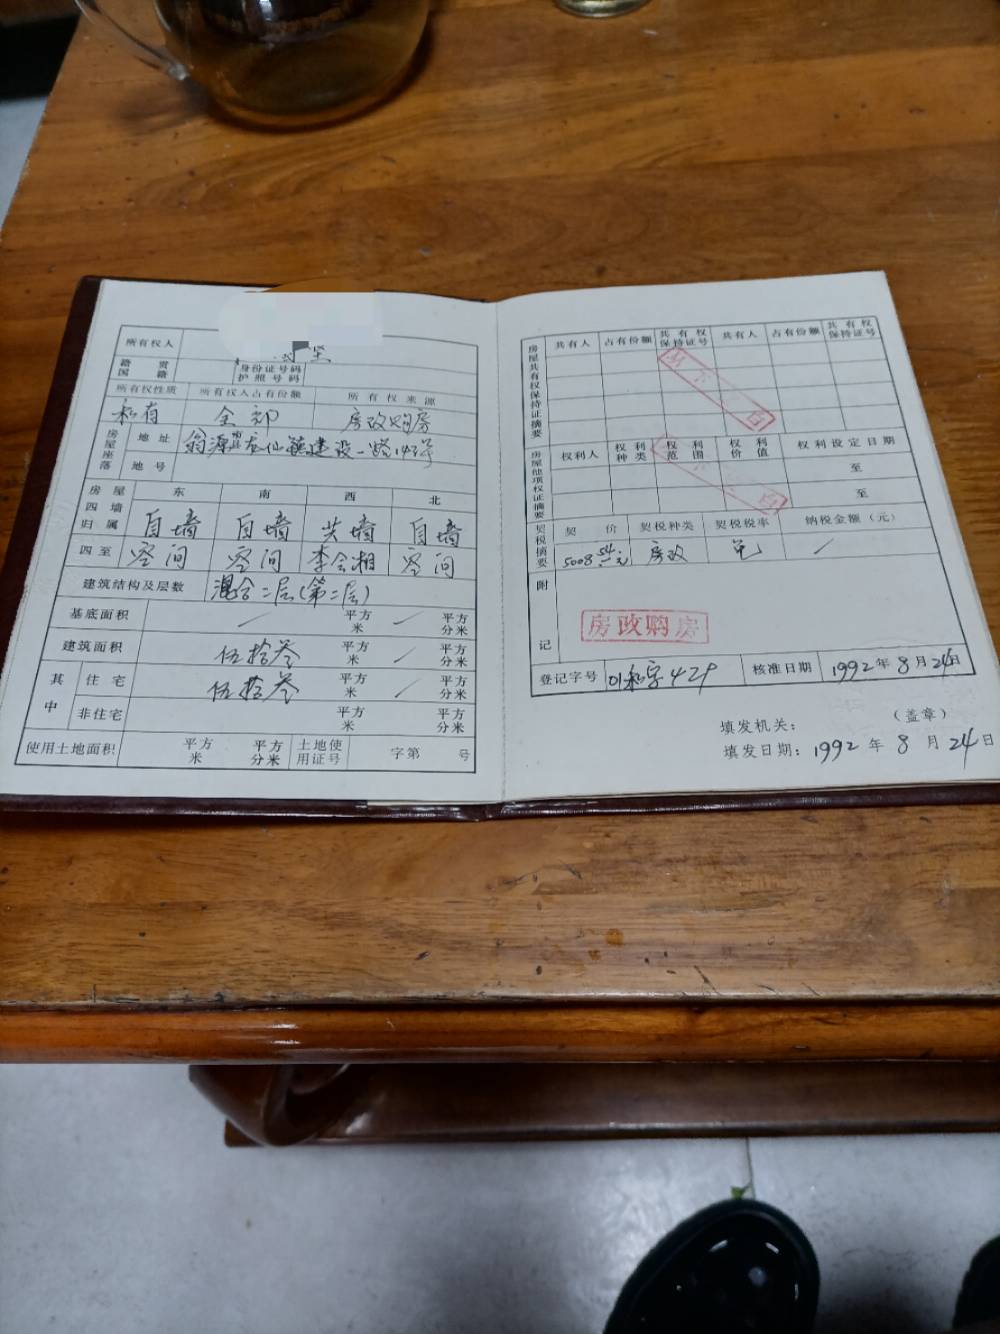 所有权人 坚
籍贯 国籍 身份证号码 护照号码
所有权性质 所有权人占有份额 所有权来源
私有 全部 房改购房
房屋座落 地址 翁源县龙仙镇建设一路143号
地号
房屋四墙归属 东 南 西 北
自墙 自墙 共墙 自墙
四至 空间 空间 李会湘 空间
建筑结构及层数 混合二层(第二层)
基底面积 平方米 平方分米
建筑面积 伍拾叁 平方米 平方分米
其中 住宅 伍拾叁 平方米 平方分米
非住宅 平方米 平方分米
使用土地面积 平方米 平方分米 土地使用证号 字第 号
房屋共有权保持证摘要 共有人 占有份额 共有权保持证号 共有人 占有份额 共有权保持证号
房屋他项权证摘要 权利人 权利种类 权利范围 权利价值 权利设定日期
至
至
契税摘要 契价 契税种类 契税税率 纳税金额（元）
5008.54元 房改 免
附记
房改购房
登记字号 01私字429 核准日期 1992年8月24日
填发机关： （盖章）
填发日期：1992年8月24日